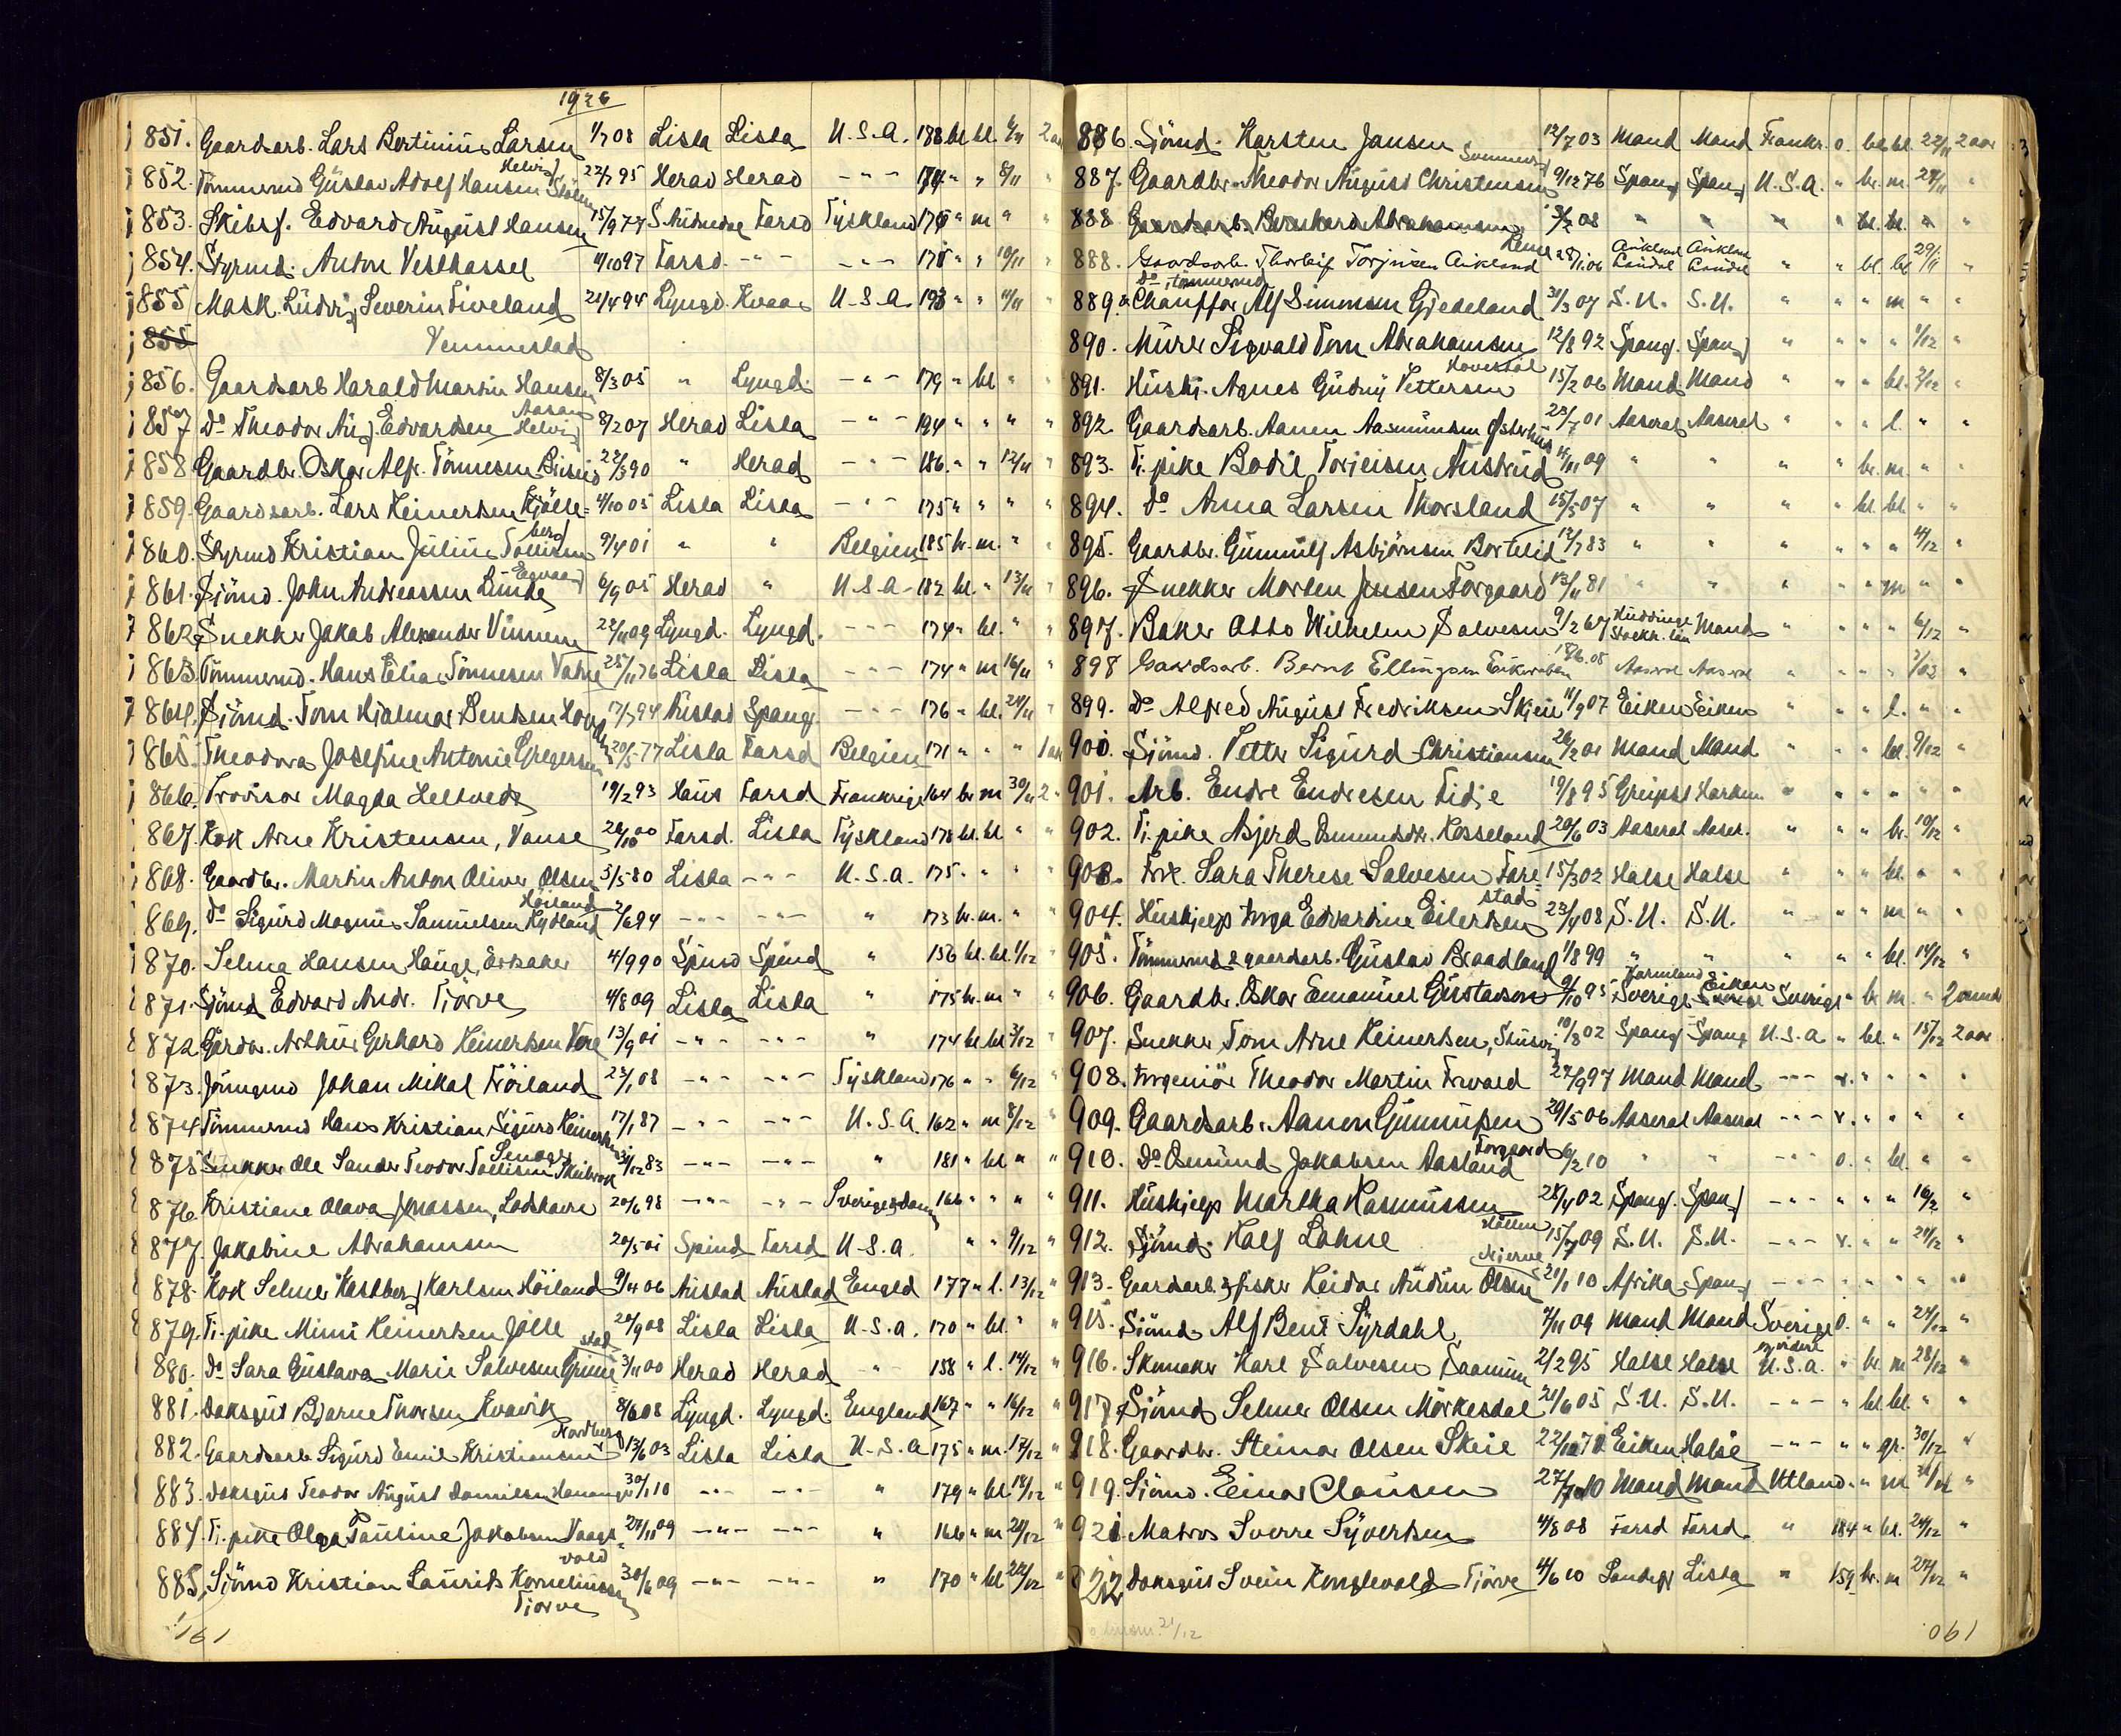 1926
851. Gaardsarb. Lars Bertinius Larsen 1/7 08 Lista Lista U.S.A. 178 bl bl. 6/11 2 aar
852. Tømmermd Gustav Adolf Hansen Helvig 22/7 95 Herad Herad - " - " " 8/11 "
853. Skibsf. Edvard August Hansen 15/9 77 S. Audnedal Farsd Tyskland 170 " m " "
854. Styrmd. Anton Vesthassel 11/10 97 Farsd. - " - - " - 178 " " 10/11 "
855 Mask. Ludvig Severin Fiveland 21/4 94 Lyngd. Kvaas U.S.A. 193 " " 11/11 "
855
Vemmestad
856. Gaardsarb Harald Martin Hansen 8/3 05 " Lyngd. - " - 179 " bl " "
Aasan
857 Do Theodor Aug Edvardsen Helvig 8/2 07 Herad Lista - " - 194 " " " "
858 Gaardbr. Oskar Alfr. Tønnesen Briseid 22/3 90 " Herad - " - 186 " " 12/11 "
859. Gaardsarb. Lars Reinertsen Kjølle= 4/10 05 Lista Lista - " - 175 " " " "
berg
860. Styrmd Kristian Julius Tollisen 9/4 01 " " Belgien 185 br. m. " "
861. Sjömd. John Andreassen Lunde 6/9 05 Herad " U.S.A. 182 bl. " 13/11 "
862 Snekker Jakob Alexander Vinnem 22/11 09 Lyngd. Lyngd. - " - 174 " bl. " "
863 Tømmermd. Hans Elias Tønnesen Vatne 25/11 76 Lista Lista - " - 174 " m 16/11 "
864. Sjömd. Tom Hjalmar Bentsen 17/7 94 Austad Spang. - " - 176 " bl. 24/11 "
865. Theodora Josefine Antonie Gregersen 20/5 77 Lista Farsd Belgien 171 " " " 1 aar
866. Provisor Magda Heltveds 19/2 93 Haus Farsd. Frankrige 164 br m 30/11 2 "
867. Kok Arne Kristensen, Vanse 28/10 00 Farsd. Lista Tyskland 178 bl. bl " "
868. Gaardbr. Martin Anton Oliver Olsen 5/5 80 Lista - " - U.S.A. 175 " " " "
Høiland
869. do Sigurd Magnus Samuelsen Rydland 2/6 94 - " - - " - " 173 br. m. " "
870. Selma Hansen Hauge, Ersaker 4/9 90 Spind Spind " 156 bl. bl. 1/12 "
871. Sjömd Edvard Andr. Tjörve 4/8 09 Lista Lista " 175 br. m " "
872 Gbrdr. Arthur Gerhard Reinertsen Vere 13/9 01 - " - - " - " 174 bl bl 3/12 "
873. Jungmd Johan Mikal Frøiland 23/1 08 - " - - " - Tyskland 176 " " 6/12 "
874 Tømmermd Hans Kristian Sigurd Reinertsen 17/1 87 - " - - " - U.S.A. 162 " m 8/12 "
875 Snekker Ole Sander Teodor Tollisen Skeibrok 31/12 83 - " - - " - " 181 " bl " "
876. Kristiane Olava Jonassen, Lodshavn 20/6 98 - " - - " - Sverige & Danm 166 " " " "
877. Jakobine Abrahamsen 20/5 01 Spind Farsd U.S.A. " " 9/12 "
878. Kok Selmer Kastberg Karlsen Höiland 9/4 06 Austad Austad Engld 177 " l. 13/12 "
879. Tj.pike Mimi Reinertsen Jølle 20/9 08 Lista Lista U.S.A. 170 " bl. " "
stad
880. Do Sara Gustava Marie Salvesen Grim 3/11 00 Herad Herad - " 158 " l. 14/12 "
881. Dæksgut Bjarne Thorsen Kvavik 8/6 08 Lyngd. Lyngd. England 167 " " 16/12 "
Nordberg
882. Gaardsarb Sigurd Emil Kristiansen 13/6 03 Lista Lista U.S.A. 175 " m. 17/12 "
883. Dæksgut Teodor August Danielsen Hananger 30/1 10 - " - - " - " 179 " bl. 18/12 "
884. Tj. pike Olga Pauline Jakobsen Vaags= 24/11 09 - " - - " - " 166 " m 20/12 "
vold
885. Sjömd Kristian Laurits Korneliussen 30/6 09 - " - - " - " 170 " bl 22/12 "
Tjørve
161
886. Sjömd. Karsten Jansen 12/7 03 Mand Mand Frankr. o. bl. bl. 22/11 2 aar
887. Gaardbr. Theodor August Christensen 9/12 76 Spang Spang U.S.A. " br. m. 24/11 "
888 Gaardsarb. Bernhard Abrahamsen 5/2 08 " " " " bl. bl. " "
888. Gaardsarb. Thorleif Torjusen Aikland 28/1 06 Laudal Laudal " " bl. bl 29/11 "
Do, tømmermd
889. & Chauffør Alf Simonsen Gjedeland 31/3 07 S.U. S.U. " " " m " "
890. Murer Sigvald Tom Abrahamsen 12/8 92 Spang. Spang " " " " 1/12 "
891. Hushj. Agnes Gudny Pettersen 15/2 06 Mand Mand " " " bl. 2/12 "
892. Gaardsarb. Aanen Aasmundsen Østerhus 23/7 01 Aaseral Aaseral " " " l. " "
893. Tj. pike Bodil Torjeisen Austrud 14/11 09 " " " " br. m. " "
894. Do Anna Larsen Thorsland 15/5 07 " " " " bl. bl. " "
895. Gaardbr. Gunnulf Asbjørnsen Bortelid 17/7 83 " " " " " " 4/12 "
896. Snekker Morten Jensen Forgaard 13/11 81 " " " " " m " "
897. Baker Otto Wilhelm Salvesen 9/2 67 Huddinge Stockh. län Mand " " " " 6/12 "
898 Gaardsarb. Bernt Ellingsen 18/6 08 Aaseral Aaseral " " " " "
899. Do Alfred August Fredriksen Skjeie 11/9 07 Eiken Eiken " " " l. " "
900. Sjömd. Petter Sigurd Christiansen 26/2 01 Mand Mand " " " bl. 9/12 "
901. Arb. Endre Endresen Fidje 19/8 95 Greipst Harkm " " " " " "
902. Tj. pike Asjerd Osmundsdtr. Rosseland 20/6 03 Aaseral Aaser. " " " br. 10/12 "
903. Frk. Sara Therese Salvesen Fare= 15/3 02 Halse Halse " " " bl. " "
stad
904. Hushjelp Inga Edvardine Eilertsen 23/4 08 S.U. S.U. " " " m " "
905. Tømmermd & gaardsarb. Gustav Braadland 1/8 99 " " " " " bl. 14/12 "
906. Gaardbr. Oskar Emanuel Gustavson 9/10 95 Värmland Sverige Eiken Sverige " br m. "
907. Snekker Tom Arne Reinertsen, 10/8 02 Spang Spang U.S.A " bl. " 15/12 2 aar
908. Ingeniör Theodor Martin Frvold 27/9 97 Mand Mand - " - v. " " " "
909. Gaardsarb. Aanen Gunnufsen 29/5 06 Aaseral Aaseral - " - v. " " " "
Forgaard
910. Do Osmund Jakobsen Aasland 6/2 10 " " - " - o. " bl. " "
911. Hushjelp Martha Rasmussen 28/4 02 Spang. Spang - " - " " " 16/2 "
912. Sjömd. Ralf Lohne 15/7 09 S.U. S.U. - " - v. " " 24/12 "
913. Gaardsarb & fisker Reidar Audun Olsen 21/1 10 Afrika Spang - " - " " " " "
915. Sjömd Alf Bent Syrdahl 7/11 09 Mand Mand Sverige o. " " 24/12 "
916. Skomaker Karl Salvesen 2/2 95 Halse Halse U.S.A. " br. m 28/12 "
917. Sjömd Selmer Olsen Mörkesdal 21/6 05 S.U. S.U. - " - " bl. bl. " "
918. Gaardbr. Steinar Olsen Skeie 22/10 Eiken Halse - " - " " gr. 30/12 "
919. Sjömd. Einar Clausen 27/7 10 Mand Mand Utland " " m 31/12 "
921 Matros Sverre Syvertsen 4/8 08 Farsd Farsd. " 184 " bl. 24/12 "
922 Dæksgut Svein Konglevold Tjörve 4/6 10 Lista " 159 br. m 27/12 "
061